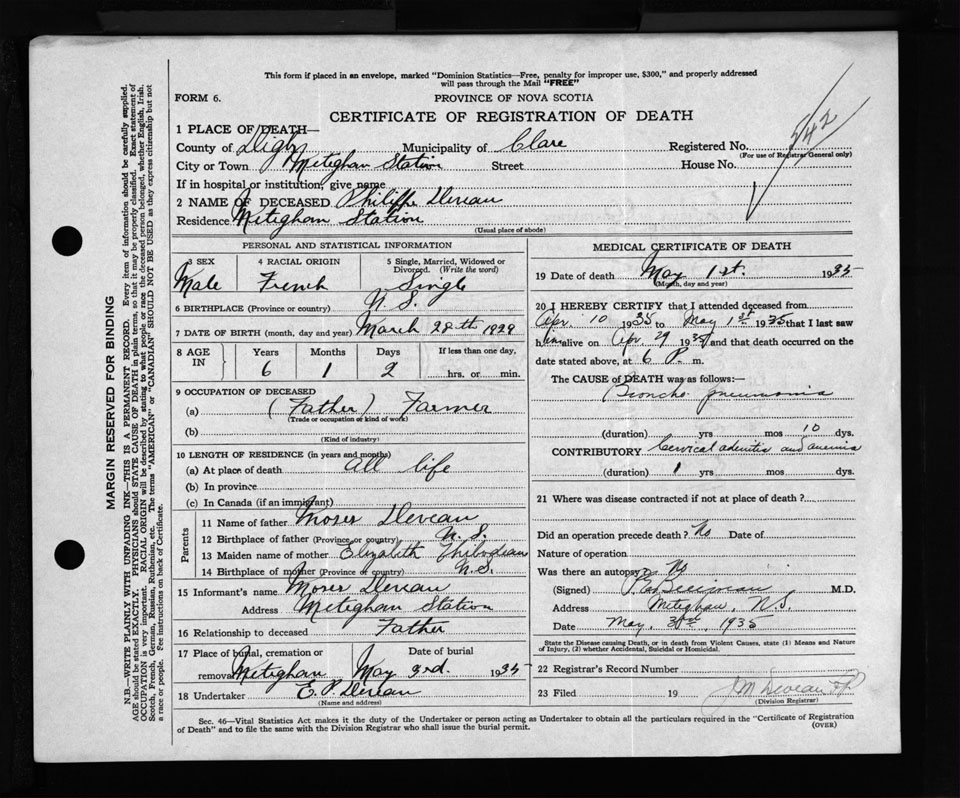 This form if placed in an envelope, marked "Dominion Statistics—Free, penalty for improper use, $300," and properly addressed
will pass through the Mail "FREE"
FORM 6.
PROVINCE OF NOVA SCOTIA
CERTIFICATE OF REGISTRATION OF DEATH
542
1 PLACE OF DEATH—
County of Digby Municipality of Clare Registered No.
(For use of Registrar General only)
City or Town Meteghan Station Street House No.
If in hospital or institution, give name
2 NAME OF DECEASED Philippe Deveau
Residence Meteghan Station
(Usual place of abode)
PERSONAL AND STATISTICAL INFORMATION
3 SEX 4 RACIAL ORIGIN 5 Single, Married, Widowed or Divorced. (Write the word)
Male French Single
6 BIRTHPLACE (Province or country) N. S.
7 DATE OF BIRTH (month, day and year) March 28th 1929
8 AGE IN Years Months Days If less than one day,
6 1 2 hrs. or min.
9 OCCUPATION OF DECEASED
(a) (Father) Farmer
(Trade or occupation or kind of work)
(b)
(Kind of industry)
10 LENGTH OF RESIDENCE (in years and months)
(a) At place of death all life
(b) In province
(c) In Canada (if an immigrant)
Parents
11 Name of father Moses Deveau
12 Birthplace of father (Province or country) N. S.
13 Maiden name of mother Elizabeth Thibodeau
14 Birthplace of mother (Province or country) N.S.
15 Informant's name Moses Deveau
Address Meteghan Station
16 Relationship to deceased Father
17 Place of burial, cremation or removal Meteghan Date of burial May 3rd. 1935
18 Undertaker E. P. Deveau
(Name and address)
MEDICAL CERTIFICATE OF DEATH
19 Date of death May 1st. 1935
(Month, day and year)
20 I HEREBY CERTIFY that I attended deceased from
Apr. 10 1935 to May 1st 1935 that I last saw
him alive on Apr. 29 1935 and that death occurred on the
date stated above, at 6 P. m.
The CAUSE of DEATH was as follows:—
Broncho pneumonia
(duration) yrs mos 10 dys.
CONTRIBUTORY Cervical adenitis and anemia
(duration) 1 yrs mos dys.
21 Where was disease contracted if not at place of death?
Did an operation precede death? No Date of
Nature of operation
Was there an autopsy No
(Signed) M.D.
Address Meteghan, N.S.
Date May 1935
State the Disease causing Death, or in death from Violent Causes, state (1) Means and Nature
of Injury, (2) whether Accidental, Suicidal or Homicidal.
22 Registrar's Record Number
23 Filed 19 J M Deveau
(Division Registrar)
Sec. 46—Vital Statistics Act makes it the duty of the Undertaker or person acting as Undertaker to obtain all the particulars required in the "Certificate of Registration
of Death" and to file the same with the Division Registrar who shall issue the burial permit.
(OVER)
MARGIN RESERVED FOR BINDING
N.B.—WRITE PLAINLY WITH UNFADING INK—THIS IS A PERMANENT RECORD. Every item of information should be carefully supplied.
AGE should be stated EXACTLY. PHYSICIANS should STATE CAUSE OF DEATH in plain terms, so that it may be properly classified. Exact statement of
OCCUPATION is very important. RACIAL ORIGIN will be described by stating to what people or race the deceased person belonged, whether English, Irish,
Scotch, French, German, Russian, Ruthenian, etc. The terms "AMERICAN" or "CANADIAN" SHOULD NOT BE USED as they express citizenship but not
a race or people. See instructions on back of Certificate.